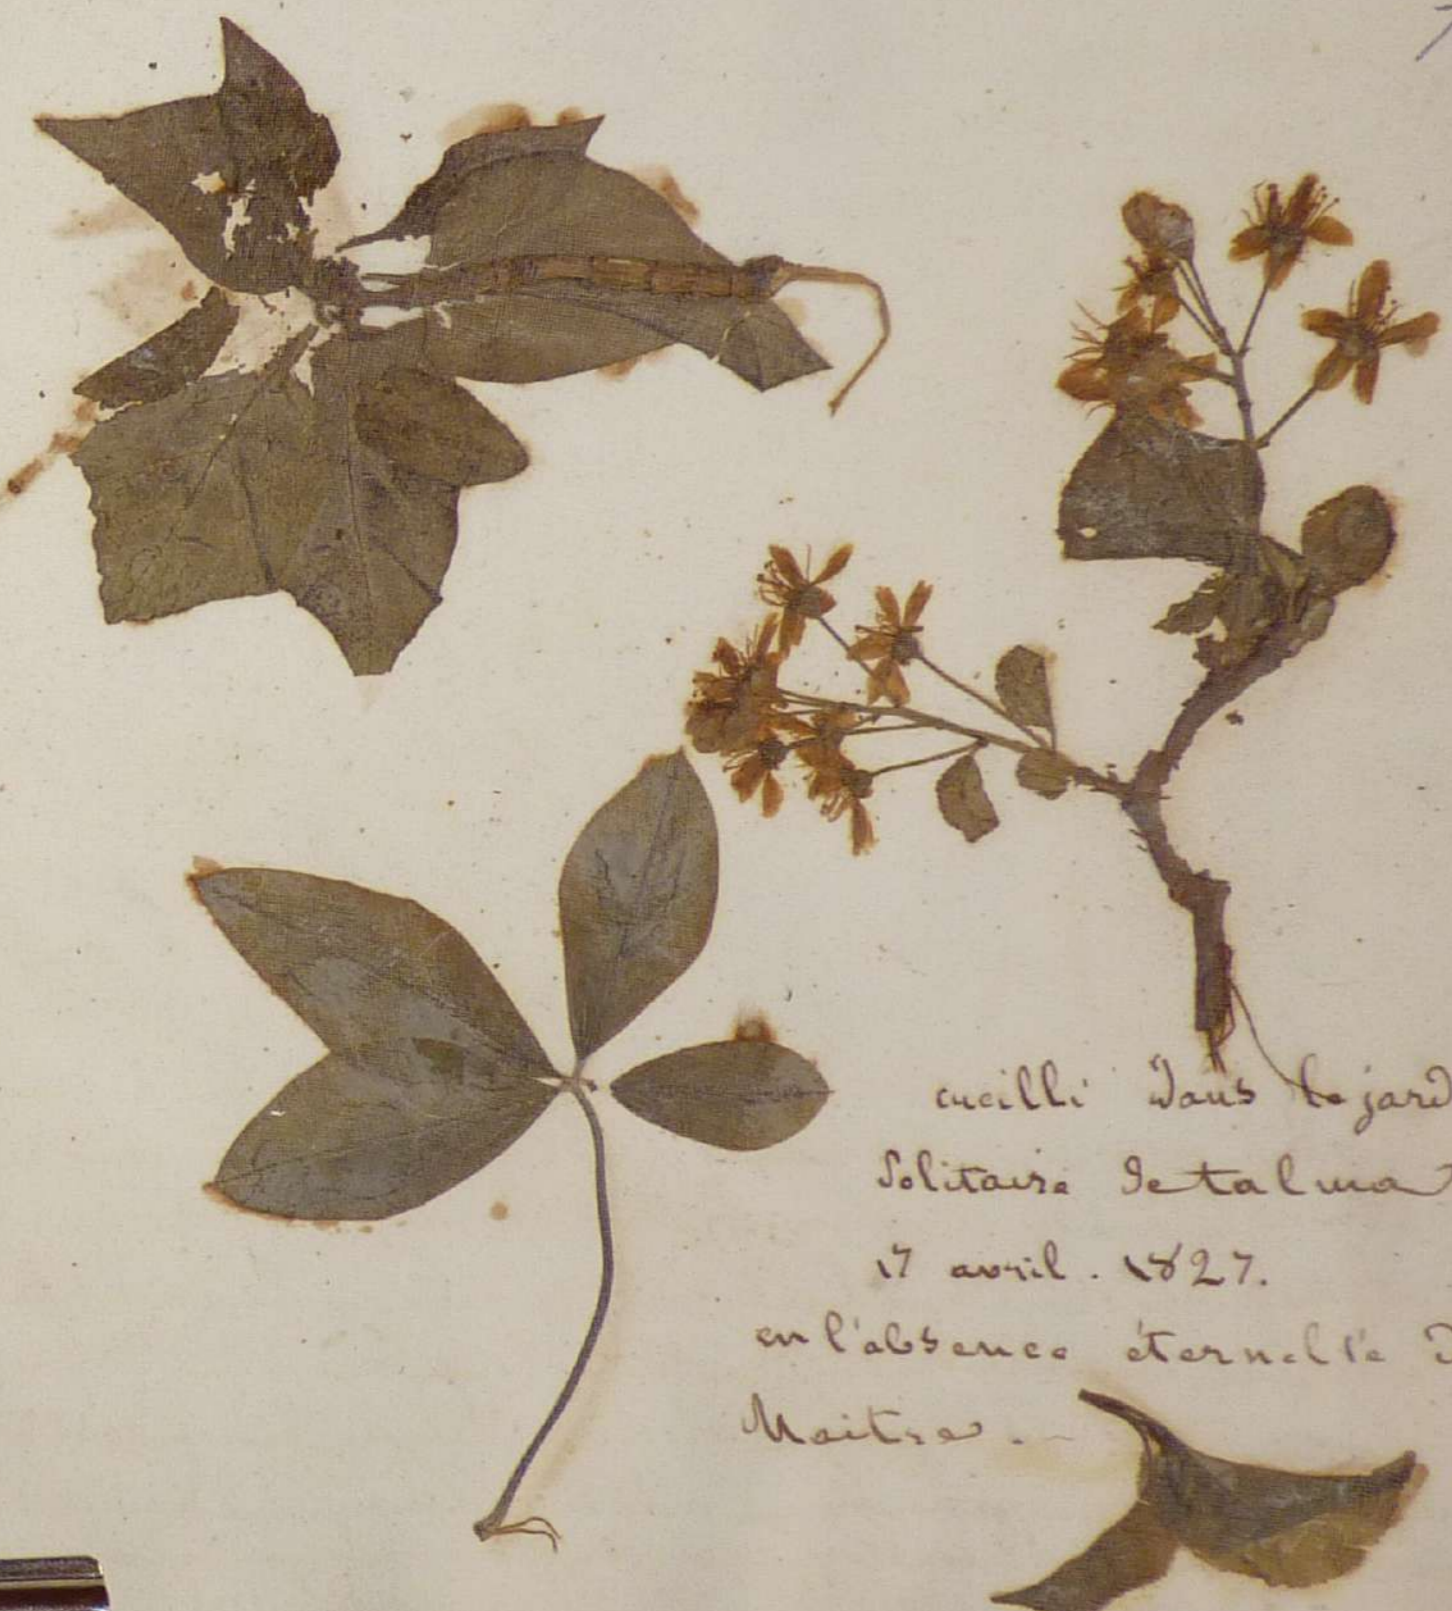 cueilli dans le jard
Solitaire de talma
17 avril. 1827.
en l'absence éternelle d
Maitre.